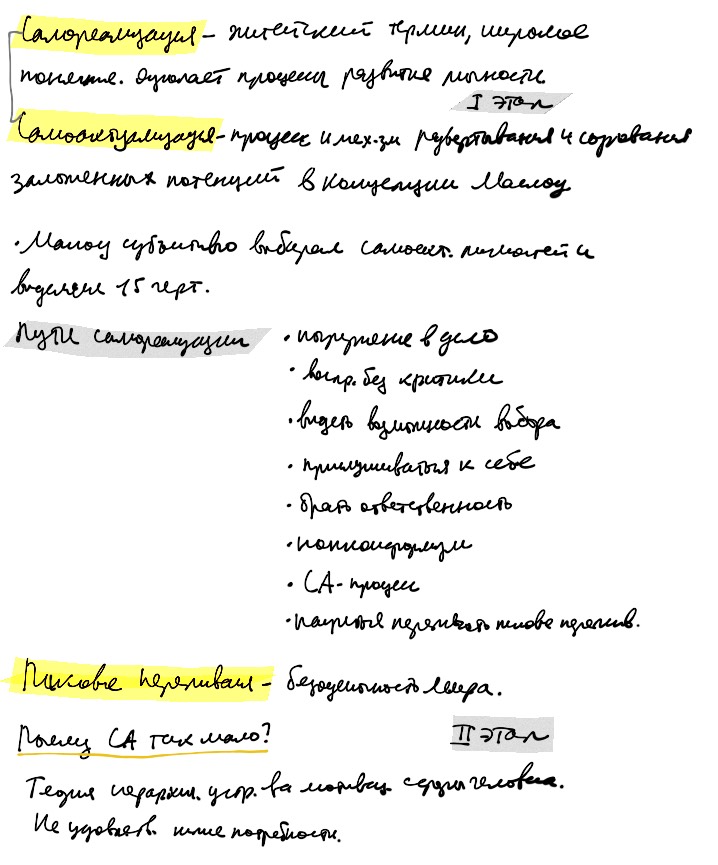 Самореализация – житейский термин, широкое
понятие. Означает процессы развития личности
I этап
Самоактуализация – процесс и мех-зм развертывания и созревания
заложенных потенций в концепции Маслоу
• Маслоу субъективно выбирал самоакт. личностей и
выделял 15 черт.
Пути самореализации
• погружение в дело
• воспр. без критики
• видеть возможности выбора
• прислушиваться к себе
• брать ответственность
• нонконформизм
• СА - процесс
• научиться переживать пиковые пережив.
Пиковые переживания – безоценочность мира.
Почему СА так мало?
II этап
Теория иерархич. устр-ва мотивац. сферы человека.
Не удовлетв. низшие потребности.